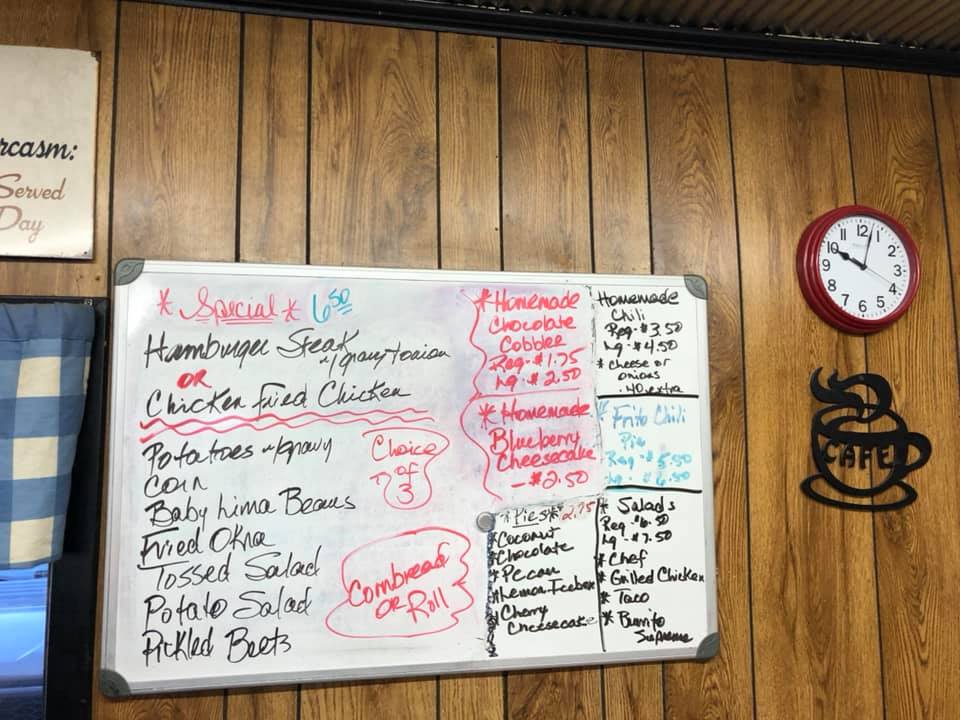 rcasm:
Served
Day
* Special * 6.50
Hamburger Steak
w/gravy & onion
OR
Chicken Fried Chicken
Potatoes w/gravy
Corn
Baby Lima Beans
Fried Okra
Tossed Salad
Potato Salad
Pickled Beets
Choice
of
3
Cornbread
OR Roll
* Homemade
Chocolate
Cobbler
Reg - $1.75
Lg - $2.50
* Homemade
Blueberry
Cheesecake
- $2.50
* Pies * 2.75
* Coconut
* Chocolate
* Pecan
* Lemon Icebox
* Cherry
Cheesecake
Homemade
Chili
Reg - $3.50
Lg - $4.50
* cheese or
onions
.40 extra
* Frito Chili
Pie
Reg - $5.50
Lg - 6.50
* Salads
Reg - $6.50
Lg - $7.50
* Chef
* Grilled Chicken
* Taco
* Burrito
Supreme
12
1
2
3
4
5
6
7
8
9
10
11
CAFE